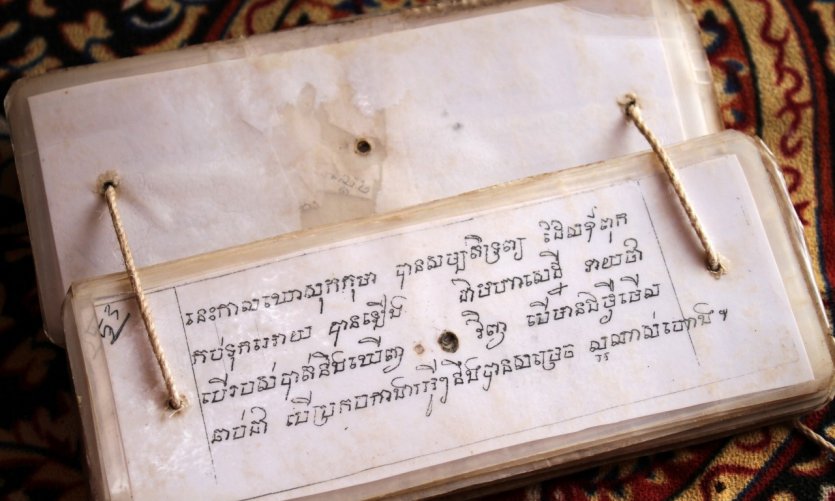 នេះកាលឃោសុកកុមា បានសម្បតិទ្រព្យ ដែលឪពុក
កប់ទុកអោយ បានឡើង ជាមហាសេដ្ឋី ទាយថា
បើរបស់បាត់នឹងឃើញ វិញ បើមានជំងឺមើល
ឆាប់ជា បើប្រកបការងារអ្វីៗនឹងបានសម្រេច ល្អណាស់ហោង។